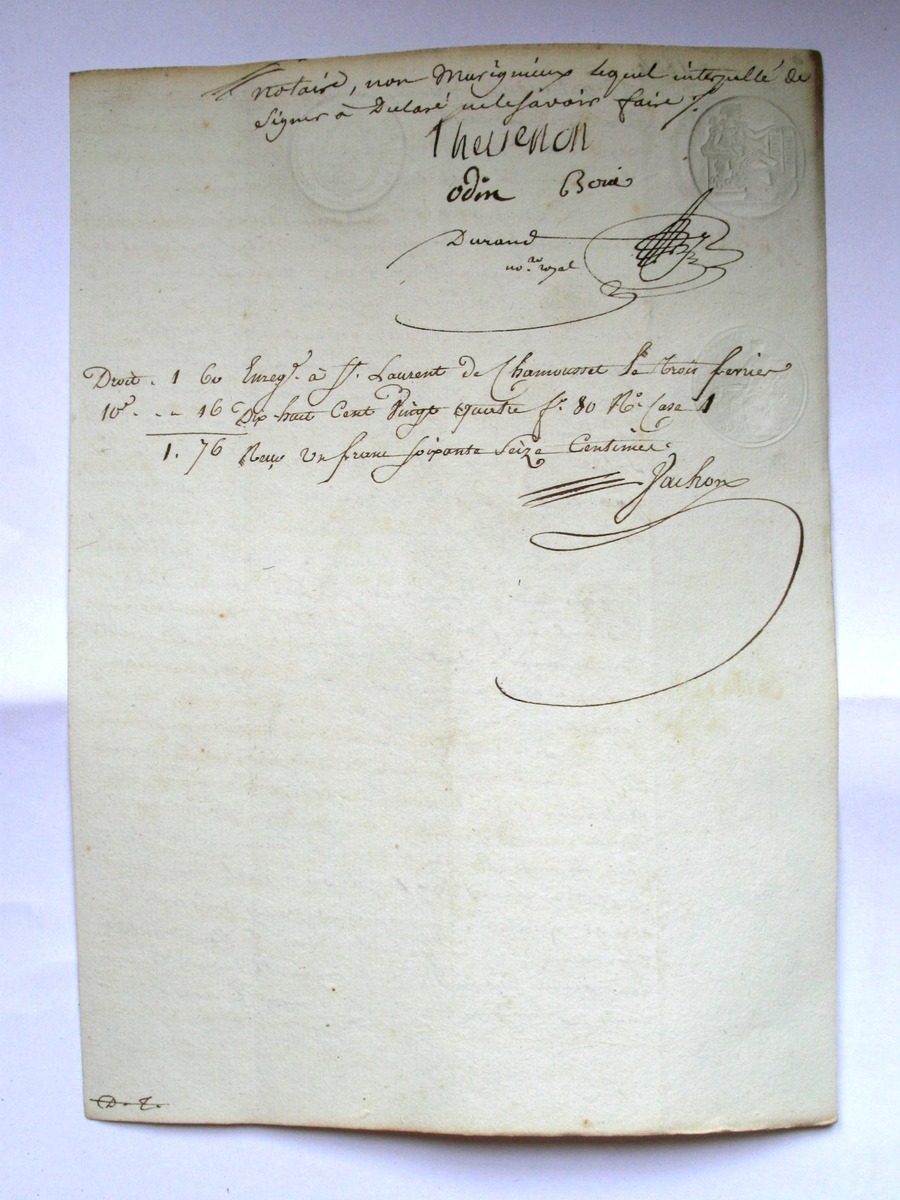 notaire, non Marignieux lequel interpellé de
signer à Declaré ne le savoir faire /.
Thevenon
odin Boué
Durand
no.re royal
Droit . 1 60 Enreg.é à St. Laurent de Chamousset le trois fevrier
10e . . - 16 Dix huit Cent Vingt quatre f.o 80 R.o Case 1
1. 76 Reçu un franc soixante Seize Centimes
Jachon
D. T.